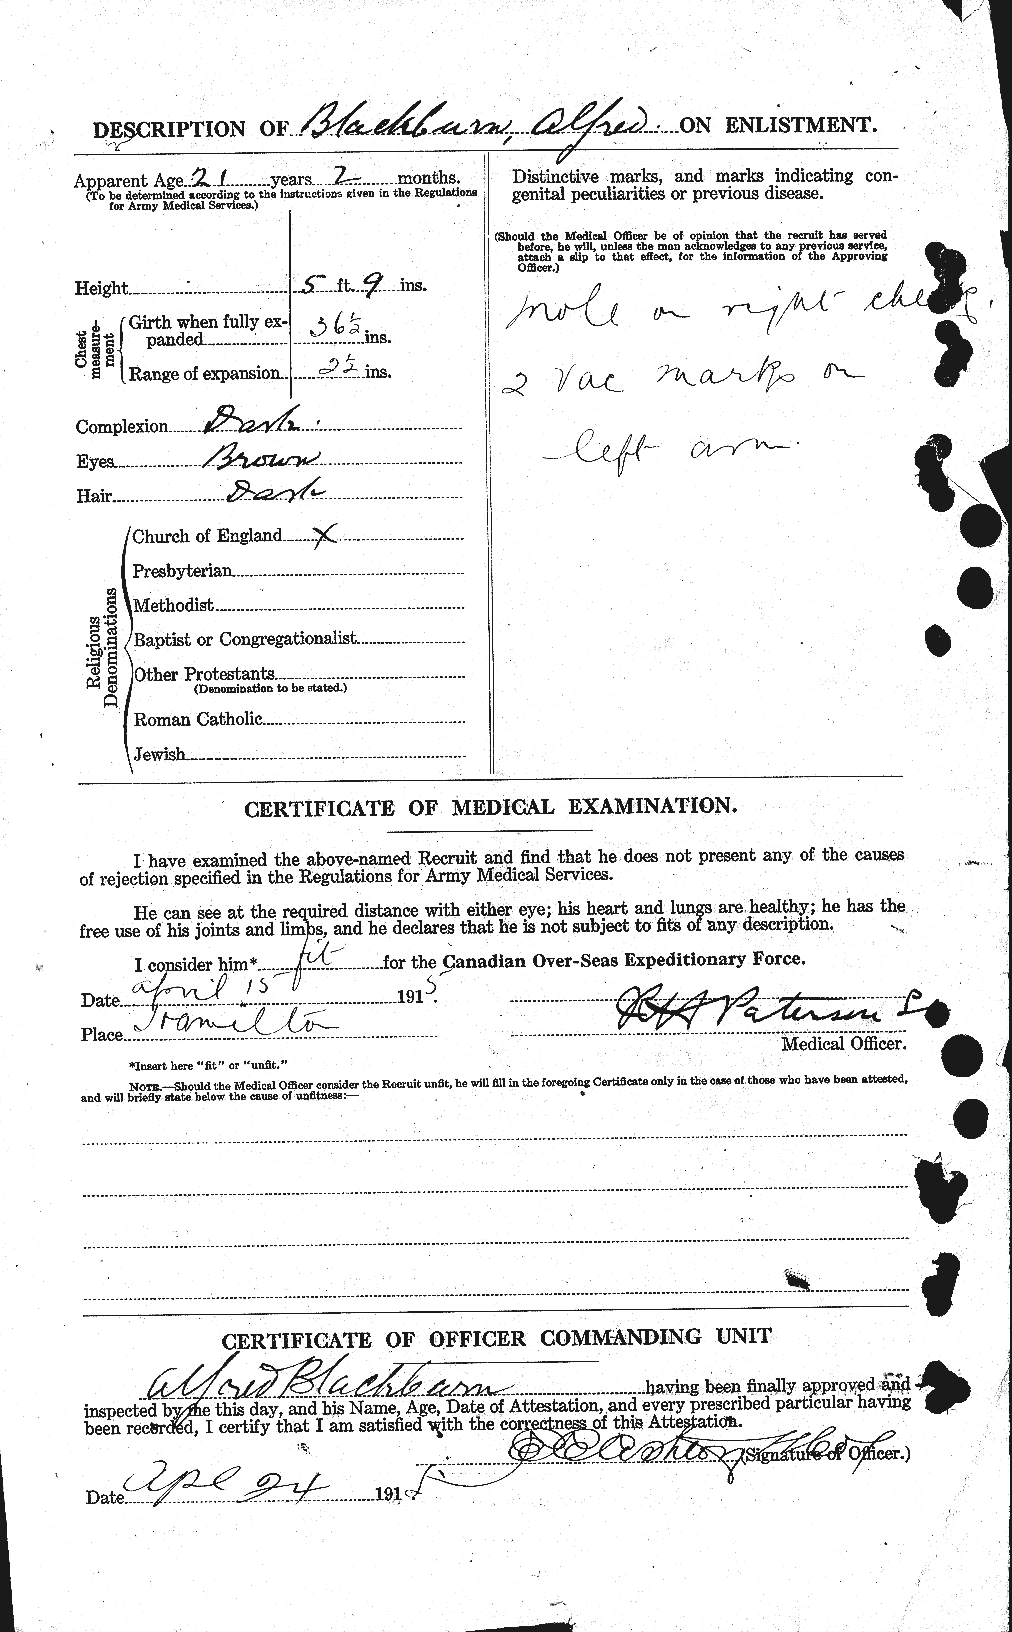 DESCRIPTION OF Blackburn, Alfred. ON ENLISTMENT.
Apparent Age 21 years 2 months.
(To be determined according to the instructions given in the Regulations
for Army Medical Services.)
Height 5 ft. 9 ins.
Chest measure-ment
Girth when fully ex-
panded 36½ ins.
Range of expansion 2½ ins.
Complexion Dark.
Eyes Brown
Hair Dark
Religious Denominations
Church of England X
Presbyterian
Methodist
Baptist or Congregationalist
Other Protestants
(Denomination to be stated.)
Roman Catholic
Jewish
Distinctive marks, and marks indicating con-
genital peculiarities or previous disease.
(Should the Medical Officer be of opinion that the recruit has served
before, he will, unless the man acknowledges to any previous service,
attach a slip to that effect, for the information of the Approving
Officer.)
Mole on right cheek.
2 Vac marks on
left arm.
CERTIFICATE OF MEDICAL EXAMINATION.
I have examined the above-named Recruit and find that he does not present any of the causes
of rejection specified in the Regulations for Army Medical Services.
He can see at the required distance with either eye; his heart and lungs are healthy; he has the
free use of his joints and limbs, and he declares that he is not subject to fits of any description.
I consider him* fit for the Canadian Over-Seas Expeditionary Force.
Date April 15 1915.
Place Hamilton
Paterson
Medical Officer.
*Insert here "fit" or "unfit."
NOTE.—Should the Medical Officer consider the Recruit unfit, he will fill in the foregoing Certificate only in the case of those who have been attested,
and will briefly state below the cause of unfitness:—
CERTIFICATE OF OFFICER COMMANDING UNIT
Alfred Blackburn having been finally approved and
inspected by me this day, and his Name, Age, Date of Attestation, and every prescribed particular having
been recorded, I certify that I am satisfied with the correctness of this Attestation.
(Signature of Officer.)
Date Apl 24 1915